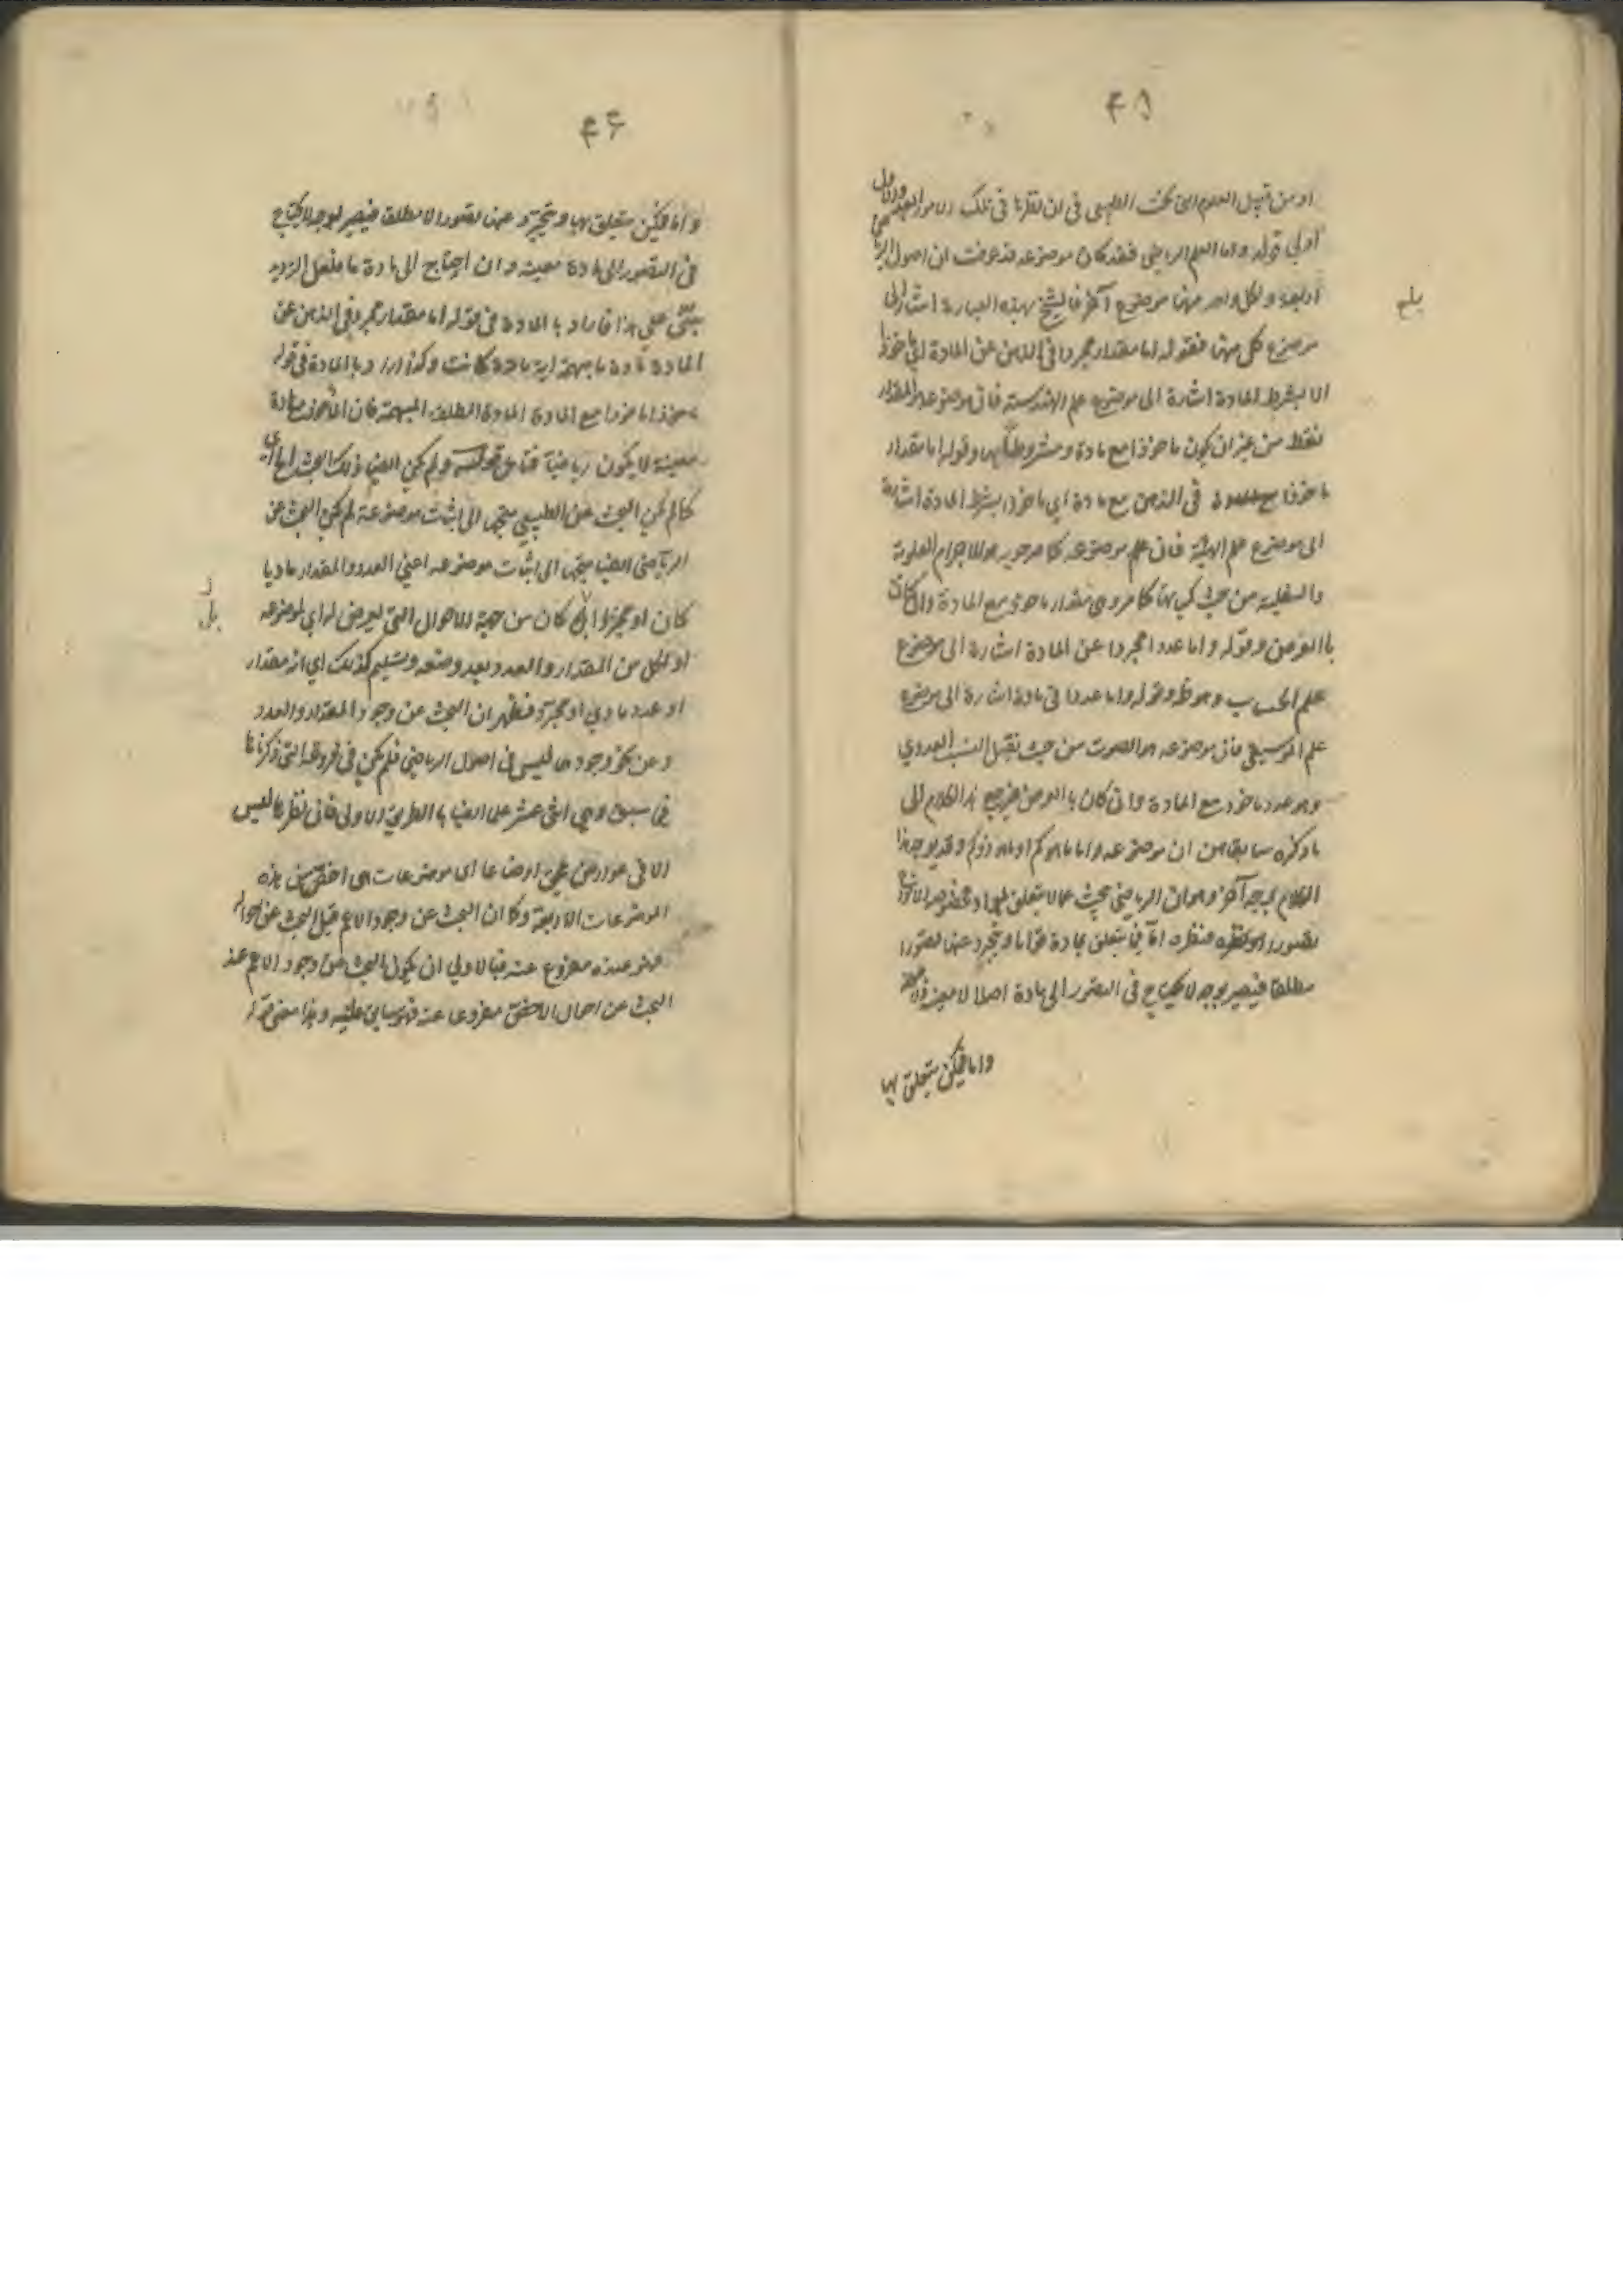 ۴۵
او من قبيل العلوم التى تحت الطبيعى فى ان نظرها فى تلك الامور
اولى قوله واما العلم الرياضى فقد كان موضوعه قد عرفت ان اصول
اربعة ولكل واحد منها موضوع آخر فالشيخ بهذه العبارة اشار الى
موضوع كل منها فقوله اما مقدار مجردا فى الذهن عن المادة اى ماخوذا
لا بشرط المادة اشارة الى موضوع علم الهندسة فان موضوعه المقدار
فقط من غير ان يكون ماخوذا مع مادة ومشروطا بها وقوله اما مقدار
ماخوذا فى الذهن مع مادة اى ماخوذا بشرط المادة اشارة
الى موضوع علم الهيئة فان موضوعه كما مر هو الاجرام العلوية
والسفلية من حيث كمياتها كما مر وهى مقدار ماخوذ مع المادة وان كان
بالعرض وقوله واما عددا مجردا عن المادة اشارة الى موضوع
علم الحساب وهو ظ وقوله واما عددا فى مادة اشارة الى موضوع
علم الموسيقى فان موضوعه هو الصوت من حيث يقبل النسب العددى
وهو عدد ماخوذ مع المادة وان كان بالعرض فيرجع هذا الكلام الى
ما ذكره سابقا من ان موضوعه واما ما هو كم او ما هو ذو كم وقد يوجه هذا
الكلام بوجه آخر وهو ان الرياضى يبحث عما لا يتعلق
تصوره فنظره اما فيما يتعلق بمادة قواما ويتجرد عنها تصورا
مطلقا فيصير بوجه لا يحتاج فى التصور الى مادة اصلا لا معينة
واما فيمن يتعلق بها
بلغ
۴۶
واما فيمن يتعلق بها ويتجرد عنها تصورا لا مطلقا فيصير بوجه لا يحتاج
فى التصور الى مادة معينة وان احتاج الى مادة ما
يبتنى على هذا فاراد بالمادة فى قوله اما مقدار مجرد فى الذهن عن
المادة مادة ما مبهمة اية مادة كانت وكذا اراد بالمادة فى قوله
ماخوذا مع المادة المادة المطلقة المبهمة فان الماخوذ مع مادة
معينة لا يكون رياضيا فتامل قوله ولم يكن ايضا ذلك البحث
كما لم يكن البحث عن الطبيعى متجها الى اثبات موضوعه لم يكن البحث عن
الرياضى ايضا متجها الى اثبات موضوعه اعنى العدد والمقدار ماديا
كان او مجردا كان من جهة الاحوال التى يعرض له اى لموضوعه
او لكل من المقدار والعدد بعد وضعه وتسليم كذلك اى انه مقدار
او عدد مادى او مجرد فظهر ان البحث عن وجود المقدار والعدد
وعن نحو وجودهما ليس فى اصول الرياضى فلم يكن فى فروعه التى ذكرناها
فى سبق وهى اثنى عشر علما ايضا بالطريق الاولى فان نظرها ليس
الا فى عوارض اوضاعها اى موضوعات هى اخص من هذه
الموضوعات الاربعة وكما ان البحث عن وجود الاعم قبل البحث عن
مفروغ عنه فبالاولى ان يكون البحث عن وجود الاعم عند
البحث عن احوال الاخص مفروغا عنه فهو سابق عليه وهذا معنى قوله